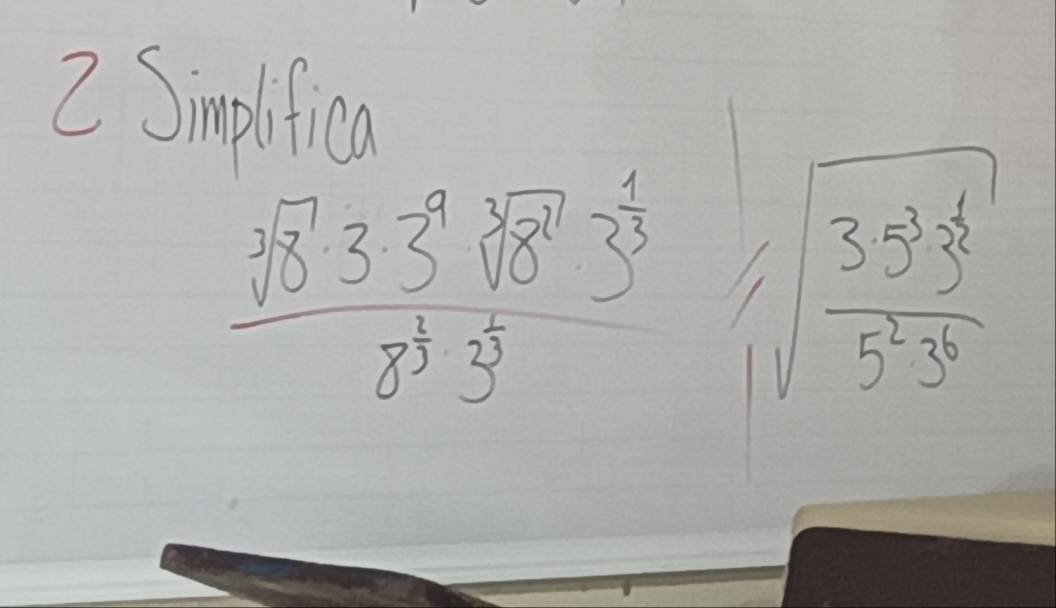 2 Simplifica
∛8 · 3 · 3⁹ · ∛8² · 3^(1/3)
8^(2/3) · 3^(1/3)
√(3 · 5³ · 3^(1/2) / 5² · 3⁶)